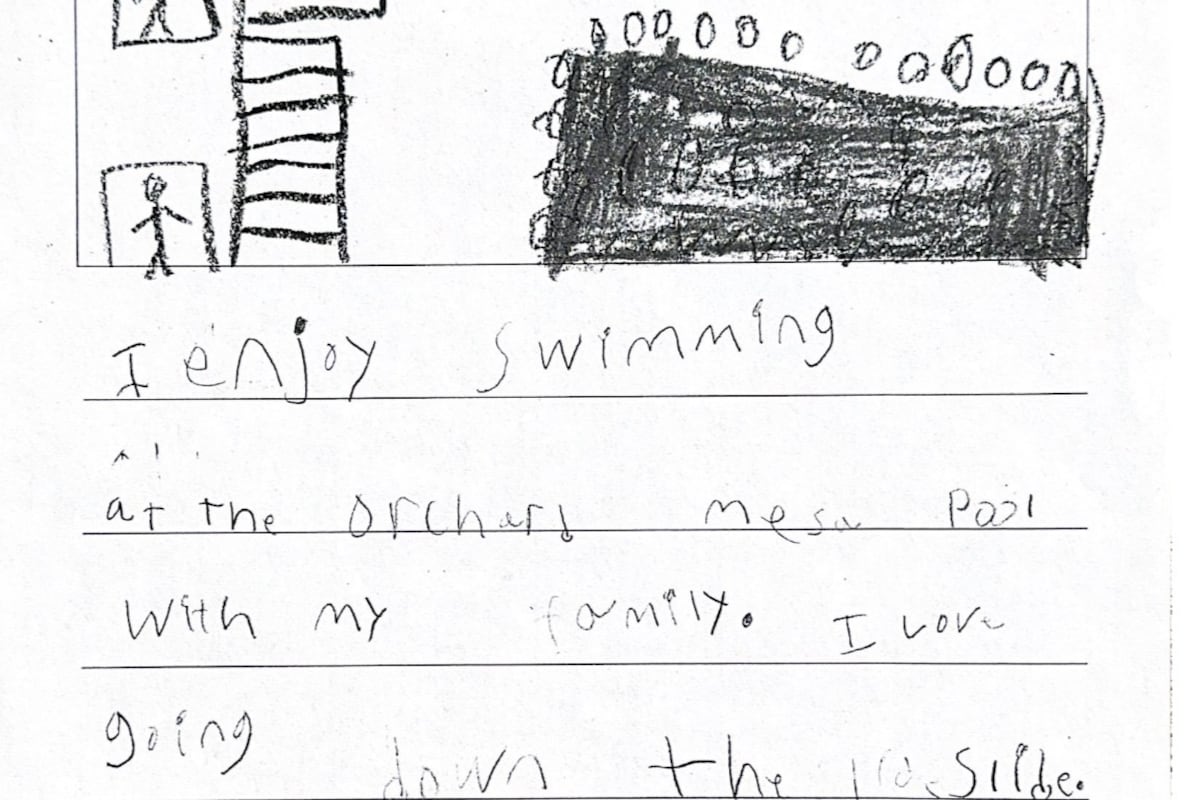 I enjoy swimming
at the orchard mesa pool
with my family. I Love
going down the slide.